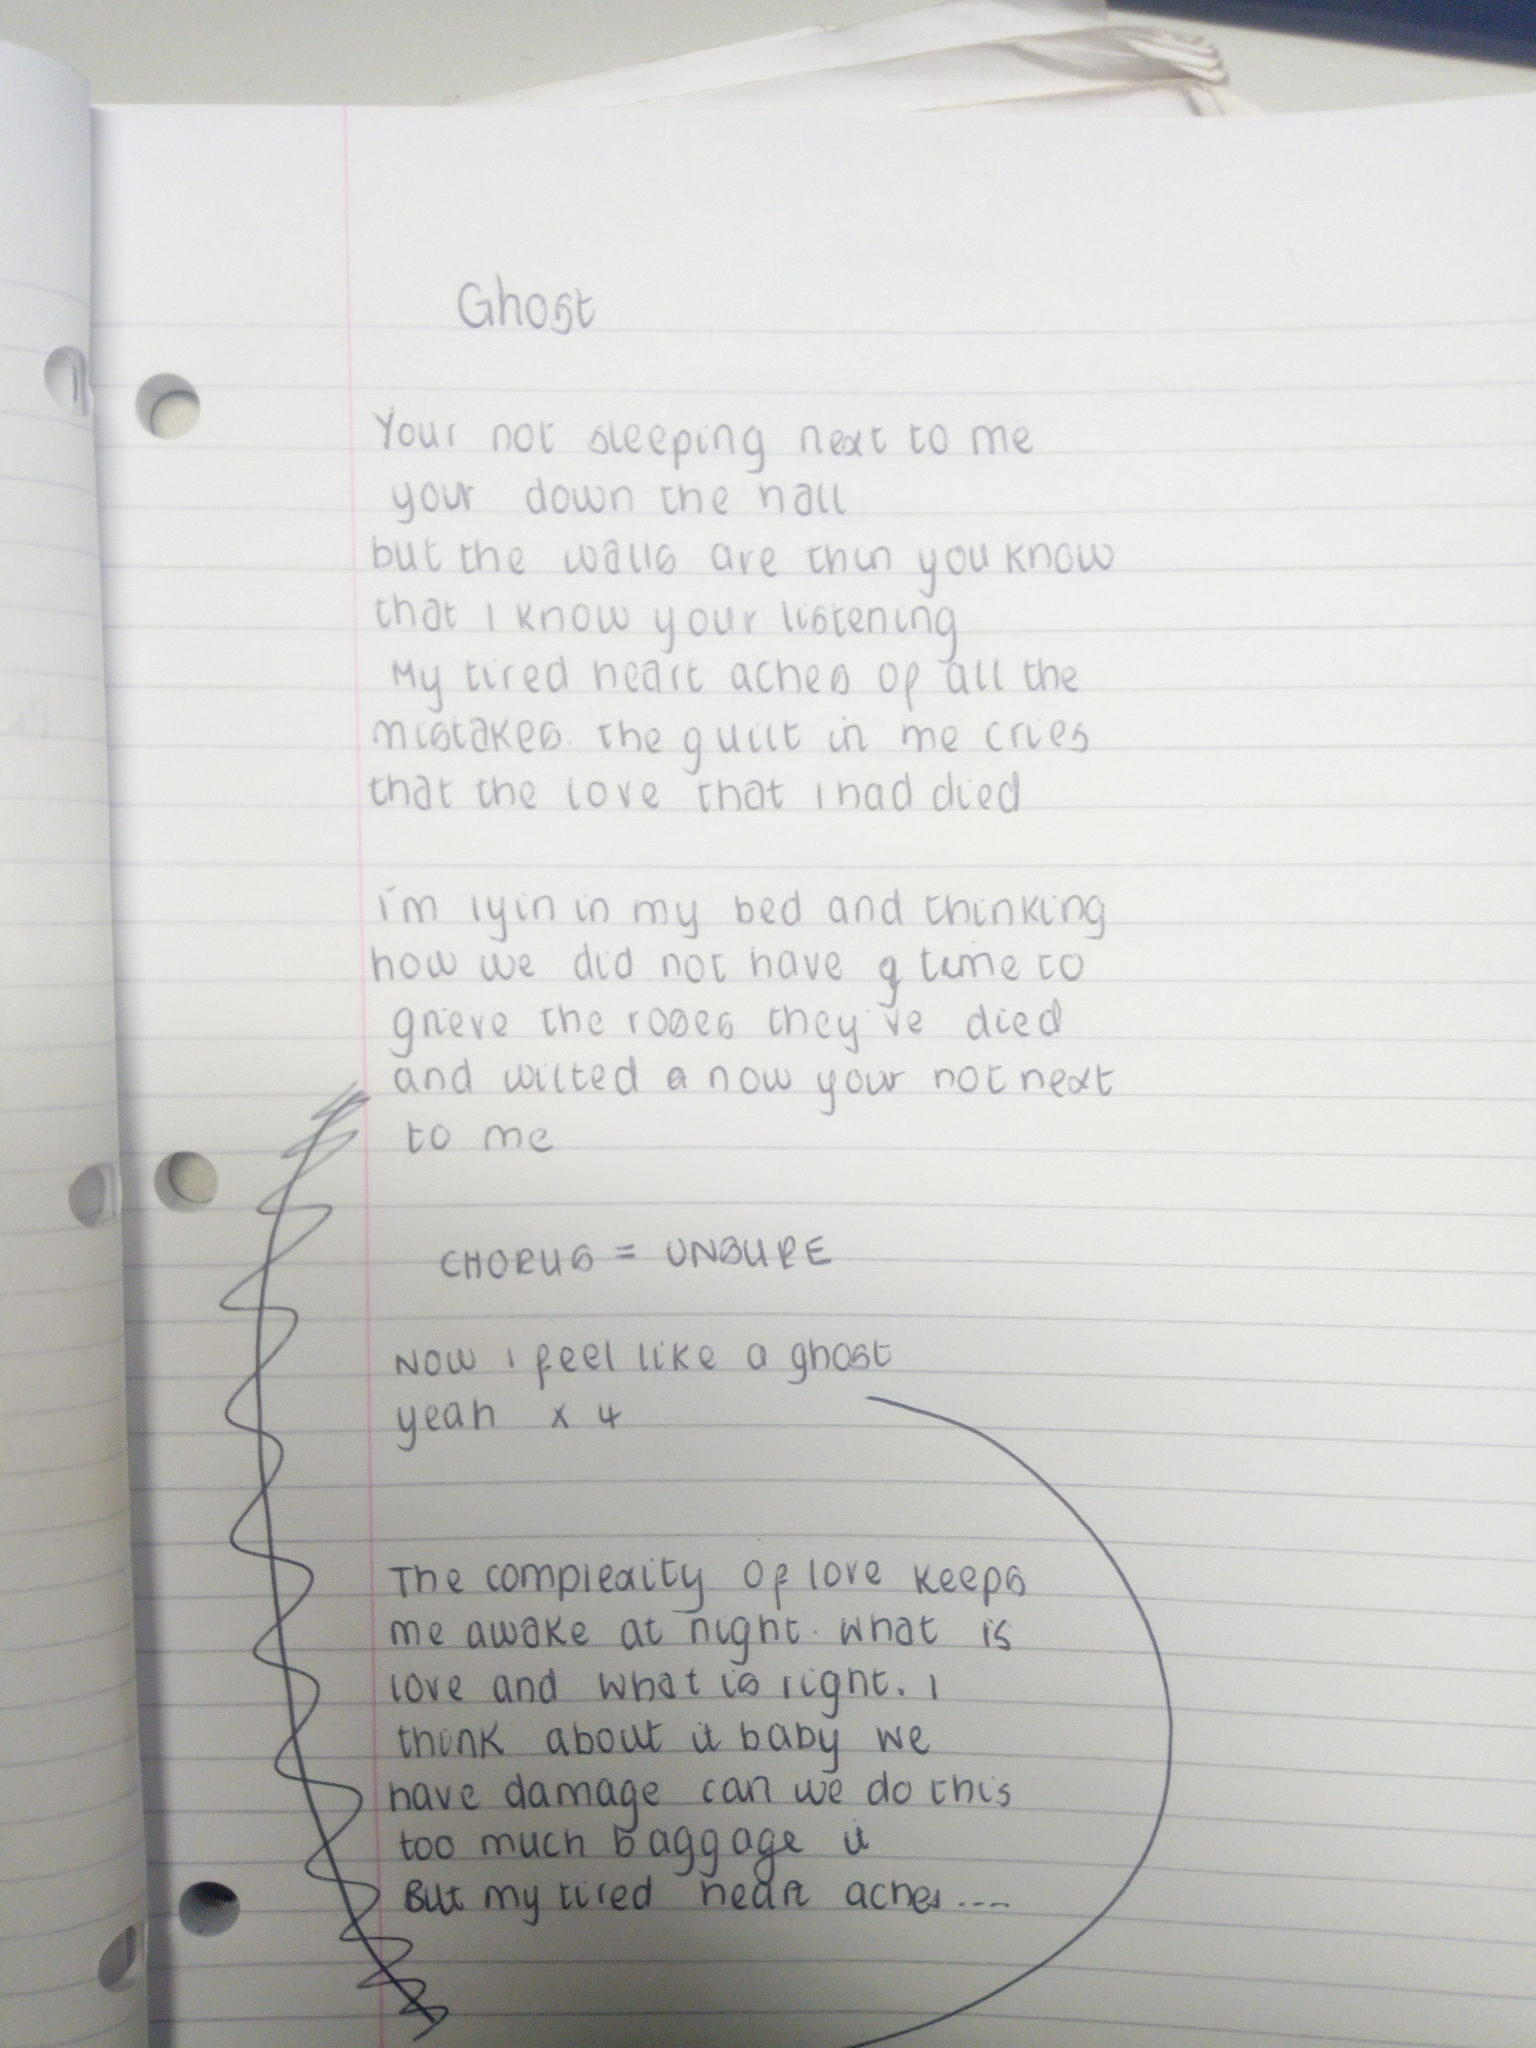 Ghost
Your not sleeping next to me
your down the hall
but the walls are thin you know
that I know your listening
My tired heart aches of all the
mistakes. the guilt in me cries
that the love that I had died
i'm lyin in my bed and thinking
how we did not have a time to
grieve the roses they've died
and wilted a now your not next
to me
CHORUS = UNSURE
Now i feel like a ghost
yeah x 4
The complexity of love keeps
me awake at night. what is
love and what is right. I
think about it baby we
have damage can we do this
too much baggage it
But my tired heart aches....